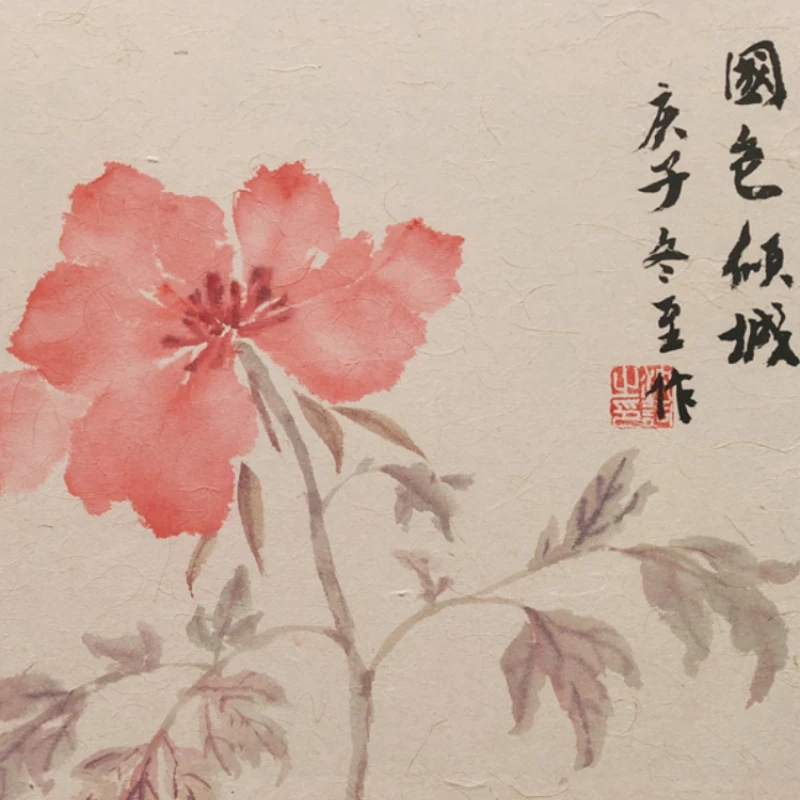 國色傾城
庚子冬至作